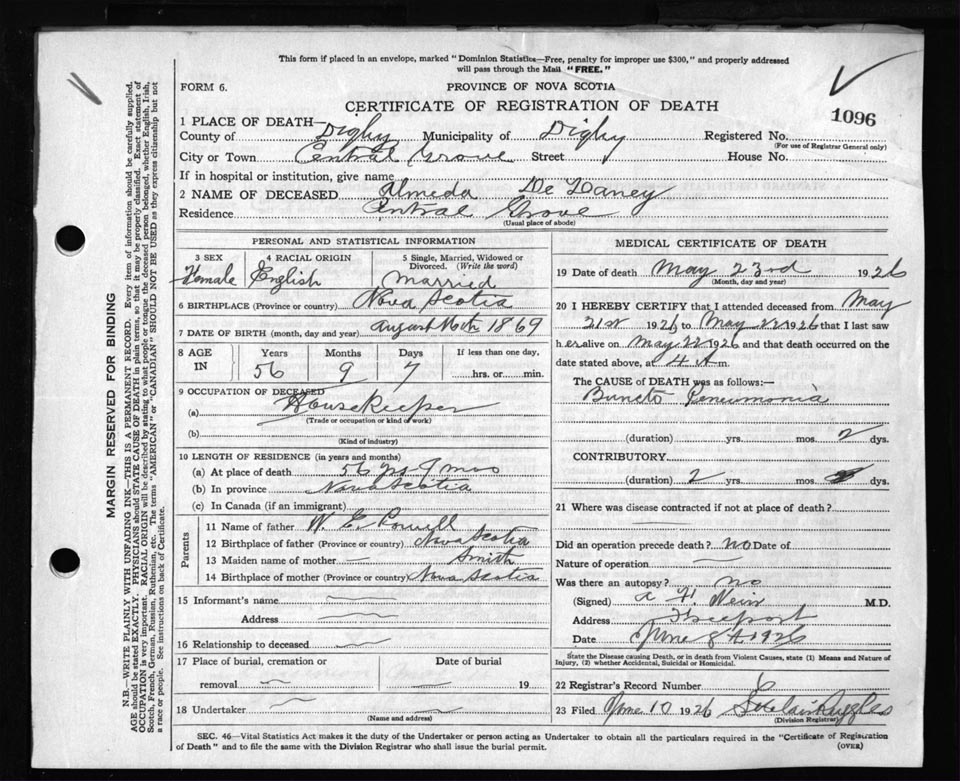 This form if placed in an envelope, marked "Dominion Statistics—Free, penalty for improper use $300," and properly addressed
will pass through the Mail "FREE."
FORM 6.
PROVINCE OF NOVA SCOTIA
CERTIFICATE OF REGISTRATION OF DEATH
1096
1 PLACE OF DEATH—
County of Digby Municipality of Digby Registered No.
(For use of Registrar General only)
City or Town Central Grove Street House No.
If in hospital or institution, give name
2 NAME OF DECEASED Almeda De Laney
Residence Central Grove
(Usual place of abode)
PERSONAL AND STATISTICAL INFORMATION
3 SEX 4 RACIAL ORIGIN 5 Single, Married, Widowed or
Divorced. (Write the word)
Female English Married
6 BIRTHPLACE (Province or country) Nova Scotia
7 DATE OF BIRTH (month, day and year) August 16th 1869
8 AGE IN Years Months Days If less than one day,
56 9 7 hrs. or min.
9 OCCUPATION OF DECEASED
(a) Housekeeper
(Trade or occupation or kind of work)
(b)
(Kind of industry)
10 LENGTH OF RESIDENCE (in years and months)
(a) At place of death 56 yrs 9 mos
(b) In province Nova Scotia
(c) In Canada (if an immigrant)
Parents
11 Name of father W. E. Powell
12 Birthplace of father (Province or country) Nova Scotia
13 Maiden name of mother Smith
14 Birthplace of mother (Province or country) Nova Scotia
15 Informant's name
Address
16 Relationship to deceased
17 Place of burial, cremation or Date of burial
removal 19
18 Undertaker
(Name and address)
MEDICAL CERTIFICATE OF DEATH
19 Date of death May 23rd 1926
(Month, day and year)
20 I HEREBY CERTIFY that I attended deceased from May
21st 1926 to May 22 1926 that I last saw
her alive on May 22 1926 and that death occurred on the
date stated above, at 4 A m.
The CAUSE OF DEATH was as follows:—
Buncto Pneumonia
(duration) yrs. mos. 2 dys.
CONTRIBUTORY
(duration) 2 yrs. mos. dys.
21 Where was disease contracted if not at place of death?
Did an operation precede death? no Date of
Nature of operation
Was there an autopsy? no
(Signed) A H Weir M.D.
Address Freeport
Date June 8th 1926
State the Disease causing Death, or in death from Violent Causes, state (1) Means and Nature of
Injury, (2) whether Accidental, Suicidal or Homicidal.
22 Registrar's Record Number 6
23 Filed June 10 1926 Ruggles
(Division Registrar)
SEC. 46—Vital Statistics Act makes it the duty of the Undertaker or person acting as Undertaker to obtain all the particulars required in the "Certificate of Registration
of Death" and to file the same with the Division Registrar who shall issue the burial permit. (OVER)
MARGIN RESERVED FOR BINDING
N.B.—WRITE PLAINLY WITH UNFADING INK—THIS IS A PERMANENT RECORD. Every item of information should be carefully supplied.
AGE should be stated EXACTLY. PHYSICIANS should STATE CAUSE OF DEATH in plain terms, so that it may be properly classified. Exact statement of
OCCUPATION is very important. RACIAL ORIGIN will be described by stating to what people or tongue the deceased person belonged, whether English, Irish,
Scotch, French, German, Russian, Ruthenian, etc. The terms "AMERICAN" or "CANADIAN" SHOULD NOT BE USED as they express citizenship but not
a race or people. See instructions on back of Certificate.